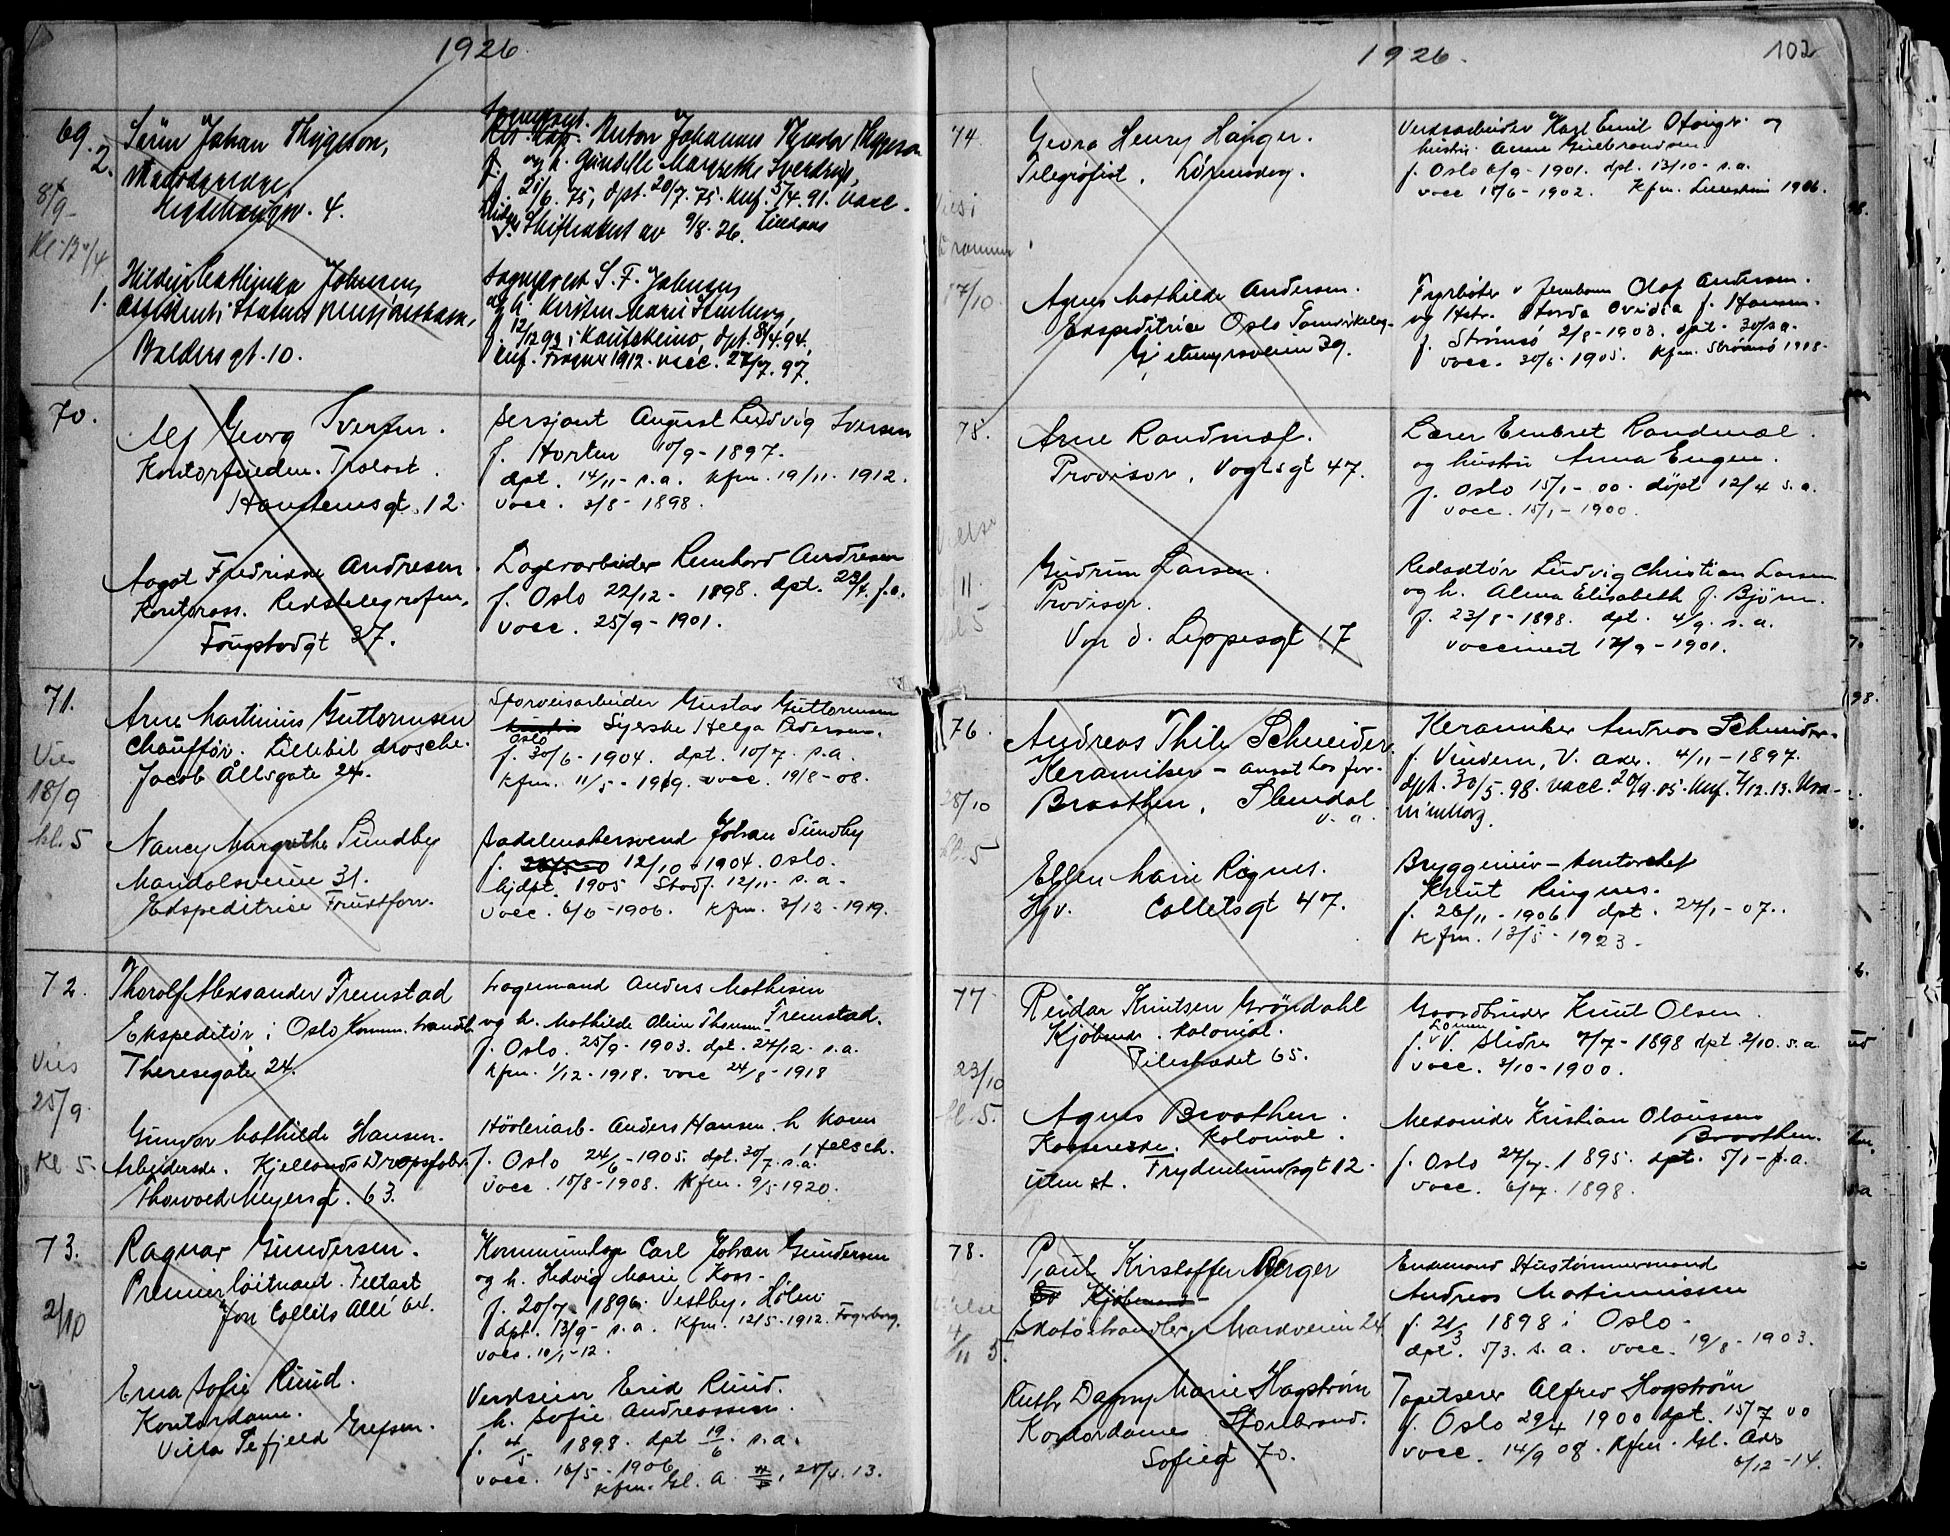 1926
69.
2.
Sørin Johan Thygeson,
Hegdehaugsv. 4.
Anton Johannes Theodor Thygeson
og h. Gunelle Margrethe Sverdrup,
f. 21/6. 75, dpt. 20/7. 75. Knf. 5/4. 91. vacc.
Skifteattest av 9/8. 26.
8/9
1.
Hildur Cathinka Johnsen
Assistent i Statens Pensjonskasse,
Waldersgt. 10.
Sogneprest S. F. Johnsen
og h. Kirsten Marie Stenberg,
f. 12/12 93 i Kautokeino, dpt. 8/4. 94.
Knf. Frogner 1912. vacc. 27/7. 97.
70.
Alf Georg Iversen.
Hanstensgt. 12.
Sersjant August Ludvig Iversen
f. Horten 10/9 - 1897.
dpt. 14/11 - s. a. Kfm. 19/11 - 1912.
vacc. 3/8 - 1898.
Aagot Fredrikke Andresen
Kontorass. Rikstelegrafen,
Fougstadgt 37.
Lagerarbeider Reinhard Andresen
f. Oslo 22/12 - 1898. dpt.
vacc. 25/9 - 1901.
71.
Vies
18/9
kl. 5
Arne Martinius Guttormsen
Chauffør. Lillebil drosche.
Jacob Ållsgate 24.
Sporveisarbeider Gustav Guttormsen
Syerske Helga Pedersen.
Oslo
f. 30/6 - 1904. dpt. 10/7. s. a.
Kfm. 11/5 - 1919. vacc. 19/8 - 08.
Nancy Margrethe Sundby
Mandalsveien 31.
Ekspeditrise Fruktforr.
Sadelmakersvend Johan Sundby
f. 12/10 - 1904. Oslo.
hjdpt. 1905 Stadf. 12/11 - s. a.
vacc. 6/6 - 1906. Kfm. 3/12 - 1919.
72.
Vies
25/9.
Kl 5.
Thorolf Alexander Fremstad
Ekspeditør i Oslo Komm. handl.
Theresegate 24.
Lagermand Anders Mathisen
Fremstad.
og h. Mathilde Oline Thomsen
f. Oslo. 25/9 - 1903. dpt. 27/12 - s. a.
Kfm. 1/12 - 1918. vacc 24/8 - 1918
Gunvor Mathilde Hansen.
Arbeiderske. Kjellands Dropsfabr.
Thorvald Meyersgt. 63.
Høvleriarb. Anders Hansen. h Karen
f. Oslo 24/6 - 1905. dpt. 30/7. s. a.
vacc. 18/8 - 1908. Kfm. 9/5 1920.
73.
2/10
Ragnar Gundersen.
Premierløitnant. Feltart
Jon Collets Alle 64.
Carl Johan Gundersen
og h. Hedvig Marie Koss.
f. 20/7 1896. Vestby, Hølen
dpt. 13/9 - s. a. Kfm. 12/5 - 1912. Fagerborg.
vacc. 10/1 - 12.
Erna Sofie Ruud.
Kontordame.
Villa Tefjeld Grefsen.
Verkseier Erik Ruud.
h. Sofie Andreassen.
1898. dpt 19/6. s. a.
vacc. 16/5 - 1906
Kfm. Gl. A. 28/4. 13.
1926.
102
74.
Georg Henry Hanger.
Telegrafist, Lørenskog.
Verksarbeider Karl Emil
hustru Anna Gulbrandsen
f. Oslo 6/9 - 1901. dpt. 13/10 - s. a.
vacc 18/6 - 1902. Kfm.
Vies i
17/10
Agnes Mathilde Andersen.
Ekspeditrice Oslo
Gjetemyrsveien 39.
Fyrbøter v Jernbanen Olaf Andersen.
og Hstr. Hansen.
f. Strømsø 2/8 - 1903. dpt. 30/8 a.
vacc. 30/6 - 1905. Kfm. Strømsø 1918.
75.
Arne Randmæl.
Provisor, Vogtsgt 47.
Lærer Embret Randmæl.
og hustru Anna Engen.
f. Oslo 15/1 - 00. døpt 12/4 s. a.
vacc. 15/1 - 1900.
Gudrun Larsen.
Provisor.
Von d. Lippesgt 17
Redaktør Ludvig Christian Larsen
og h. Alma Elisabeth f. Bjørn.
f. 23/8 - 1898. dpt. 4/9. s. a.
vaccinert 17/9 - 1901.
76.
25/10
kl. 5
Andreas Thile Schneider
Keramiker - ansat hos for.
Braathen, Slemdal
v. a.
Keramiker Andreas Schneider.
f. Vindern, V. Aker. 4/11 - 1897.
dpt. 30/5. 98. vacc. 20/9. 05. Knf. 7/12. 13.
Ellen Marie Ringnes.
Hjv. Colletsgt 47.
Knut Ringnes.
f. 26/11 - 1906 dpt. 27/1 - 07.
Kfm. 13/5 - 1923.
77
23/10
kl. 5.
Reidar Knutsen Grøndahl
Kjøbmd. Kolonial.
Pilestrædet 65.
Gaardbruker Knut Olsen.
f. V. Slidre 7/7 - 1898 dpt. 2/10. s. a
vacc. 3/10 - 1900.
Agnes Braathen.
Kassererske. Kolonial.
uten st. Frydenlundsgt 12.
Mekaniker Kristian Olaussen
Braathen.
f. Oslo 1895. dpt. 5/1 - f. a.
vacc. 1898.
78.
4/11 5.
Paul Kristoffer Berger
Kjøbmand
Skotøihandler, Markveien 24
Enkemand Hustømmermand
Andreas Martinussen
f. 21/3 1898 i Oslo.
dpt. 5/3. s. a. vacc. 19/8 - 1903.
Ruth Dagny Marie Hagstrøm
Kontordame Storebrand.
Sofiegt 70.
Tapetserer Alfred Hagstrøm
f. Oslo 29/4 1900 dpt. 15/7 00
vacc. 14/9 08. Kfm. Gl. Aker
6/12 - 14.